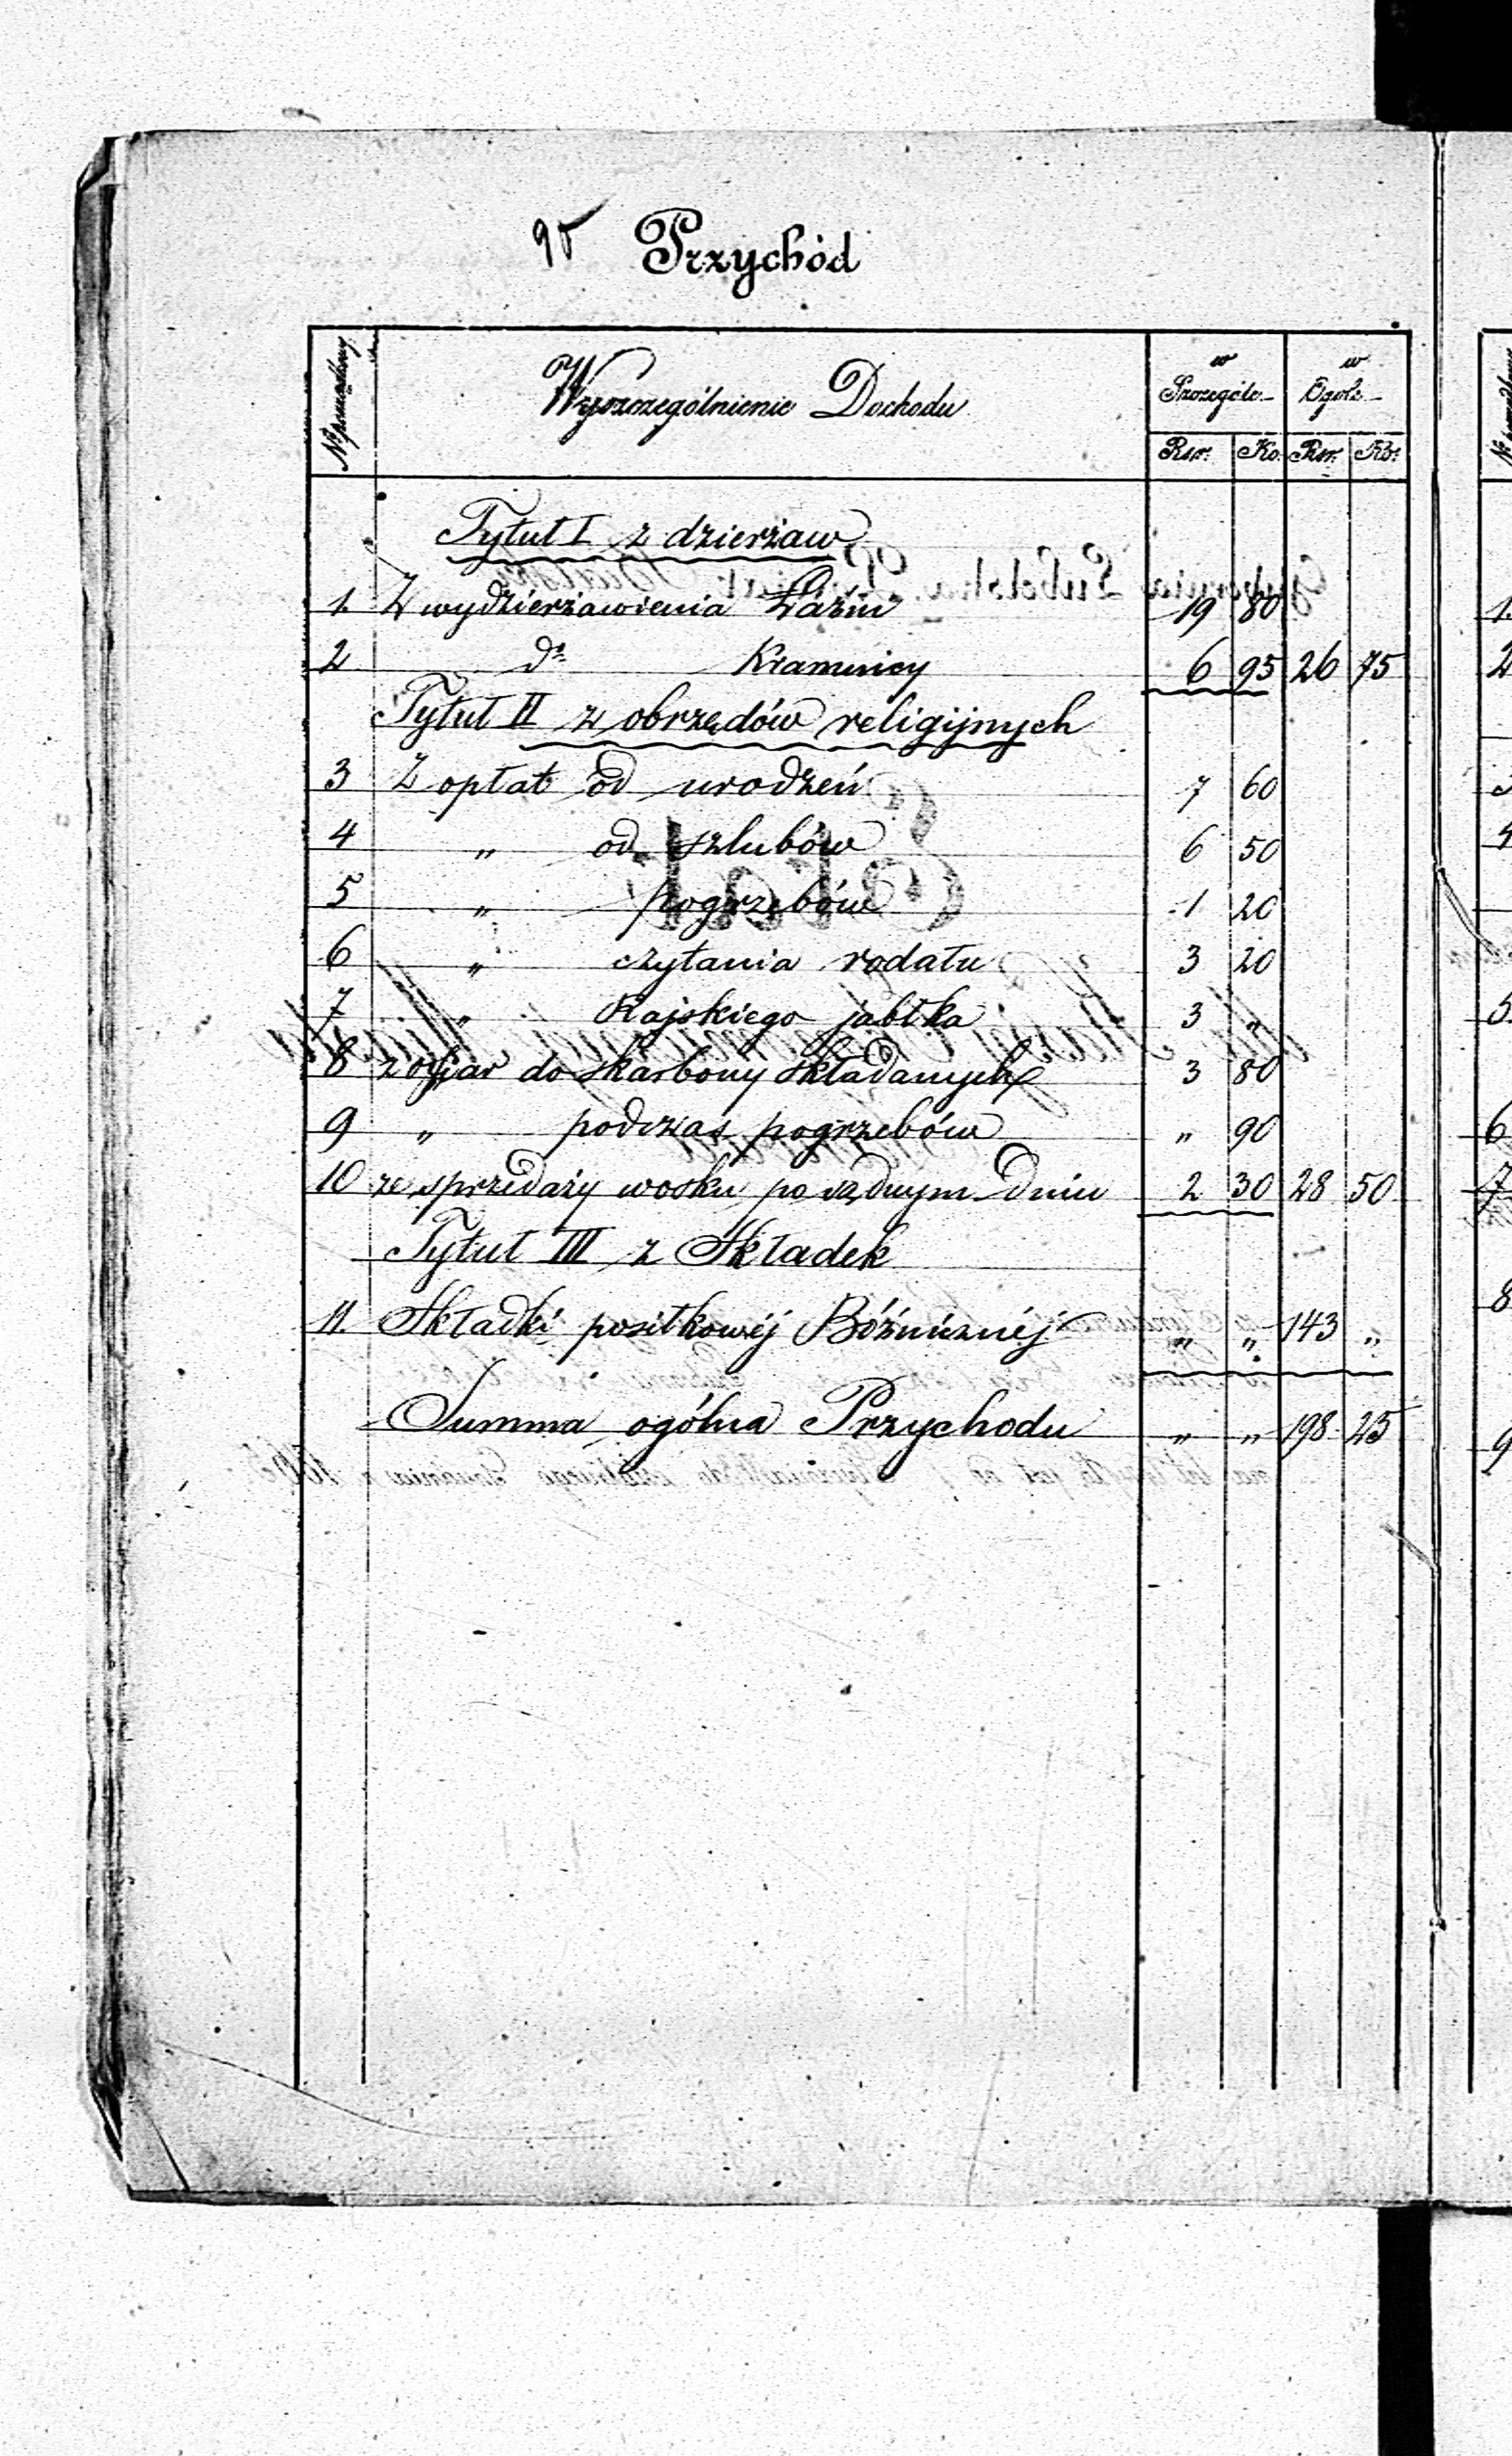 95 Przychód
№ porządkowy
Wyszczególnienie Dochodu
w Szczególe
w Ogóle
Rsr. Ko. Rsr. Ko.
Tytuł I z dzierżaw
1. Z wydzierżawienia Łaźni 19 80
2 do Kramnicy 6 95 26 75
Tytuł II z obrzędów religijnych
3 Z opłat od urodzeń 7 60
4 „ od szlubów 6 50
5 „ pogrzebów 1 20
6 „ czytania rodału 3 20
7 „ Rajskiego jabłka 3 „
8 z ofiar do skarbony składanych 3 80
9 „ podczas pogrzebów „ 90
10 ze sprzedaży wosku po sądnym Dniu 2 30 28 50
Tytuł III z Składek
11. Składki posiłkowéj Bóźniznéj „ „ 143 „
Summa ogólna Przychodu „ „ 198 25
1.
2
5
6
7
8
9